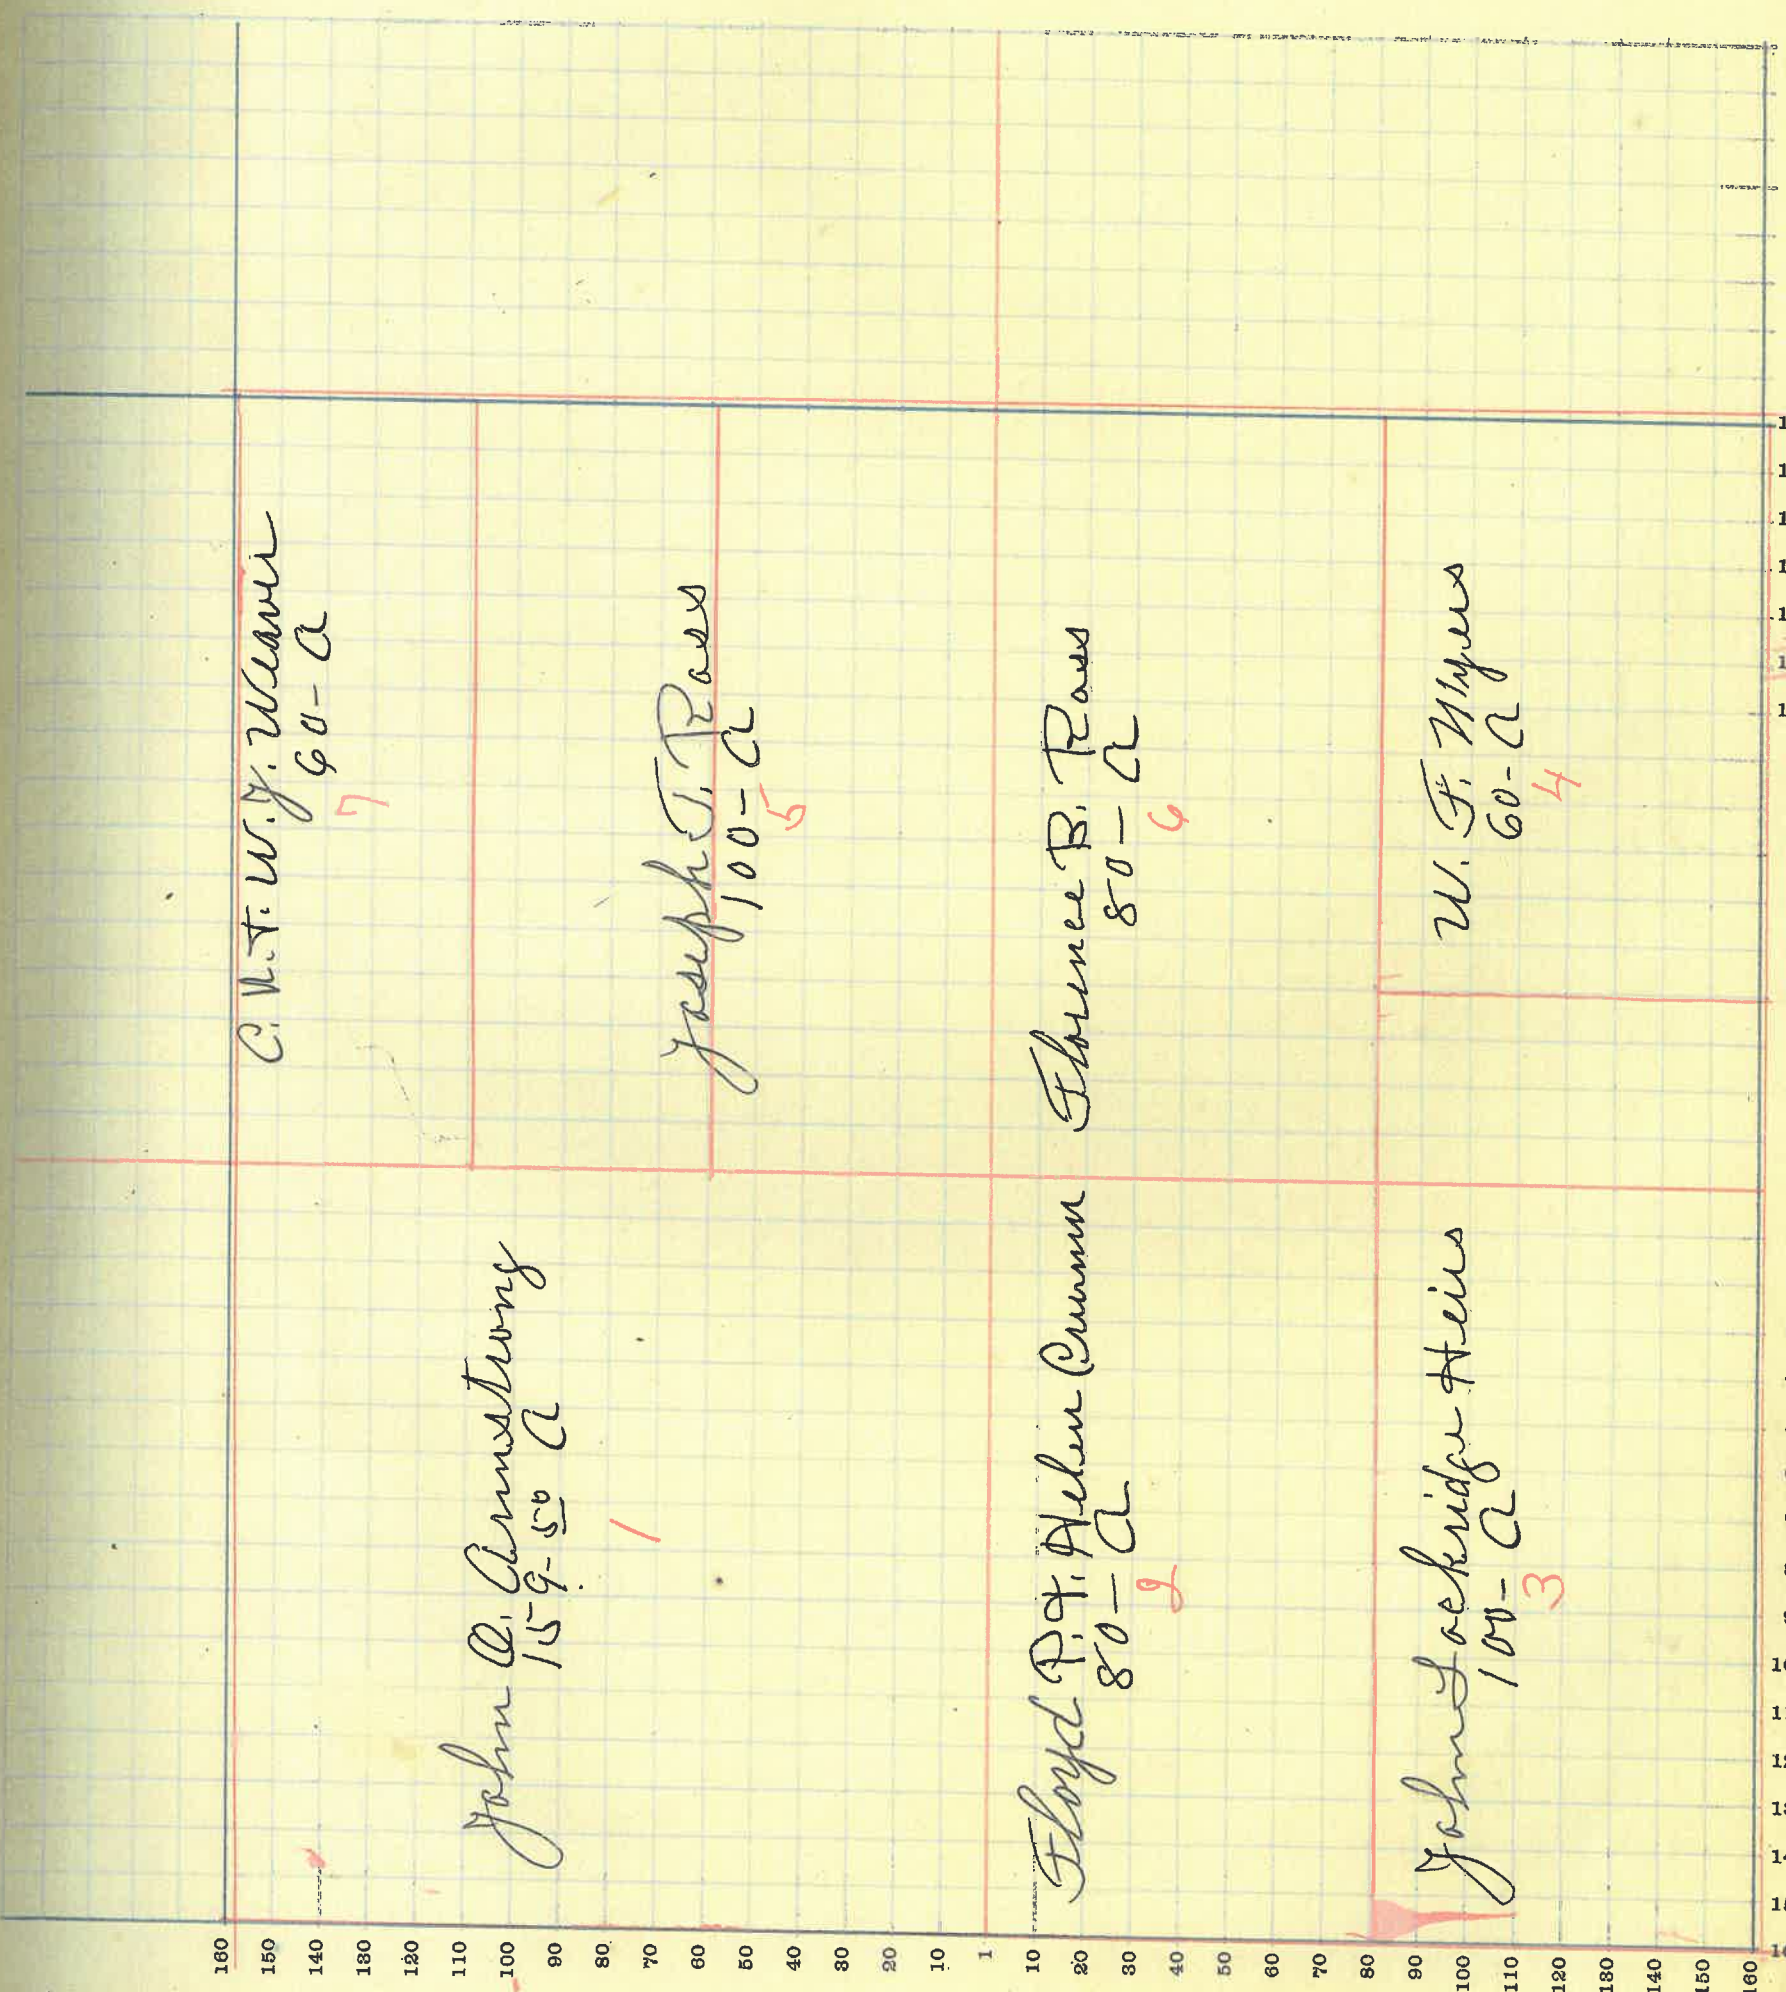 C. N. & W. J. Weaver
60 - a
7
Joseph T. Ross
100 - a
5
Florence B. Ross
80 - a
6
W. F. Myers
60 - a
4
John O. Armstrong
159.50 a
1
Floyd P. & Helen Crumm
80 - a
2
John Lockridge Heirs
100 - a
3
160
150
140
130
120
110
100
90
80
70
60
50
40
30
20
10
1
10
20
30
40
50
60
70
80
90
100
110
120
130
140
150
160